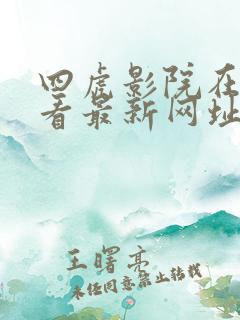 四虎影院在
看最新网址
王曙亮
未经同意禁止转载